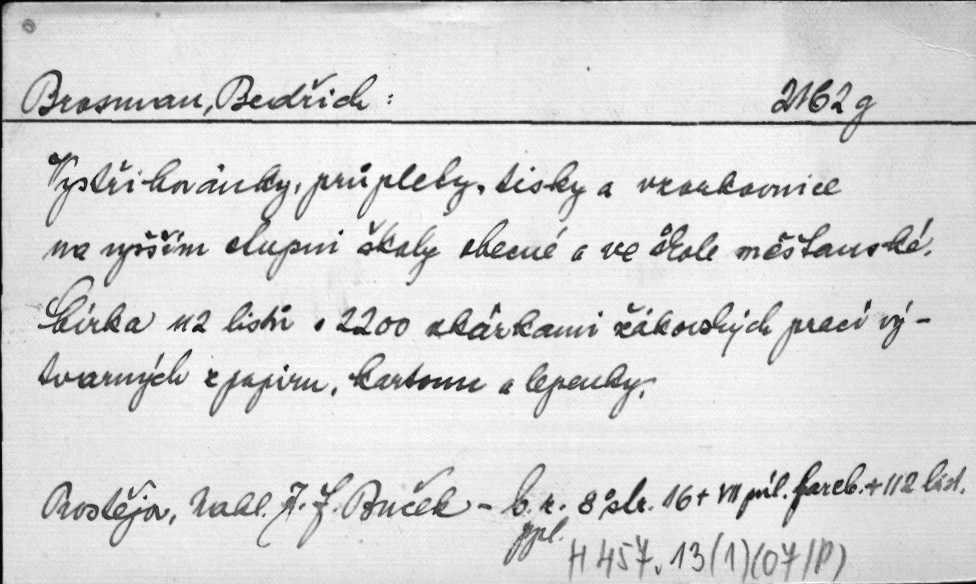 Brosman, Bedřich: 2162 g
Vystřihovánky, průplety, tisky a vzorkovnice
na vyšším stupni školy obecné a ve škole měšťanské.
Sbírka 112 listů s 2200 ukázkami žákovských prací vý-
tvarných z papíru, kartonu a lepenky.
Prostějov, Nakl. J. F. Buček - b. r. 8° str. 16 + VII příl. fareb. + 112 list.
ppl.
H 457, 13(1)(07/P)